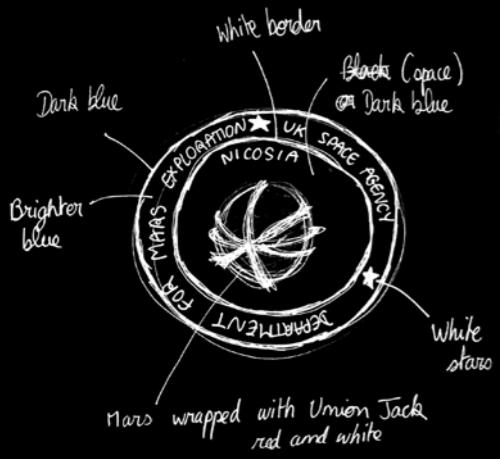 White border
Black (space)
Dark blue
Dark blue
Brighter
blue
DEPARTMENT FOR MARS EXPLORATION
UK SPACE AGENCY
NICOSIA
White
stars
Mars wrapped with Union Jack
red and white